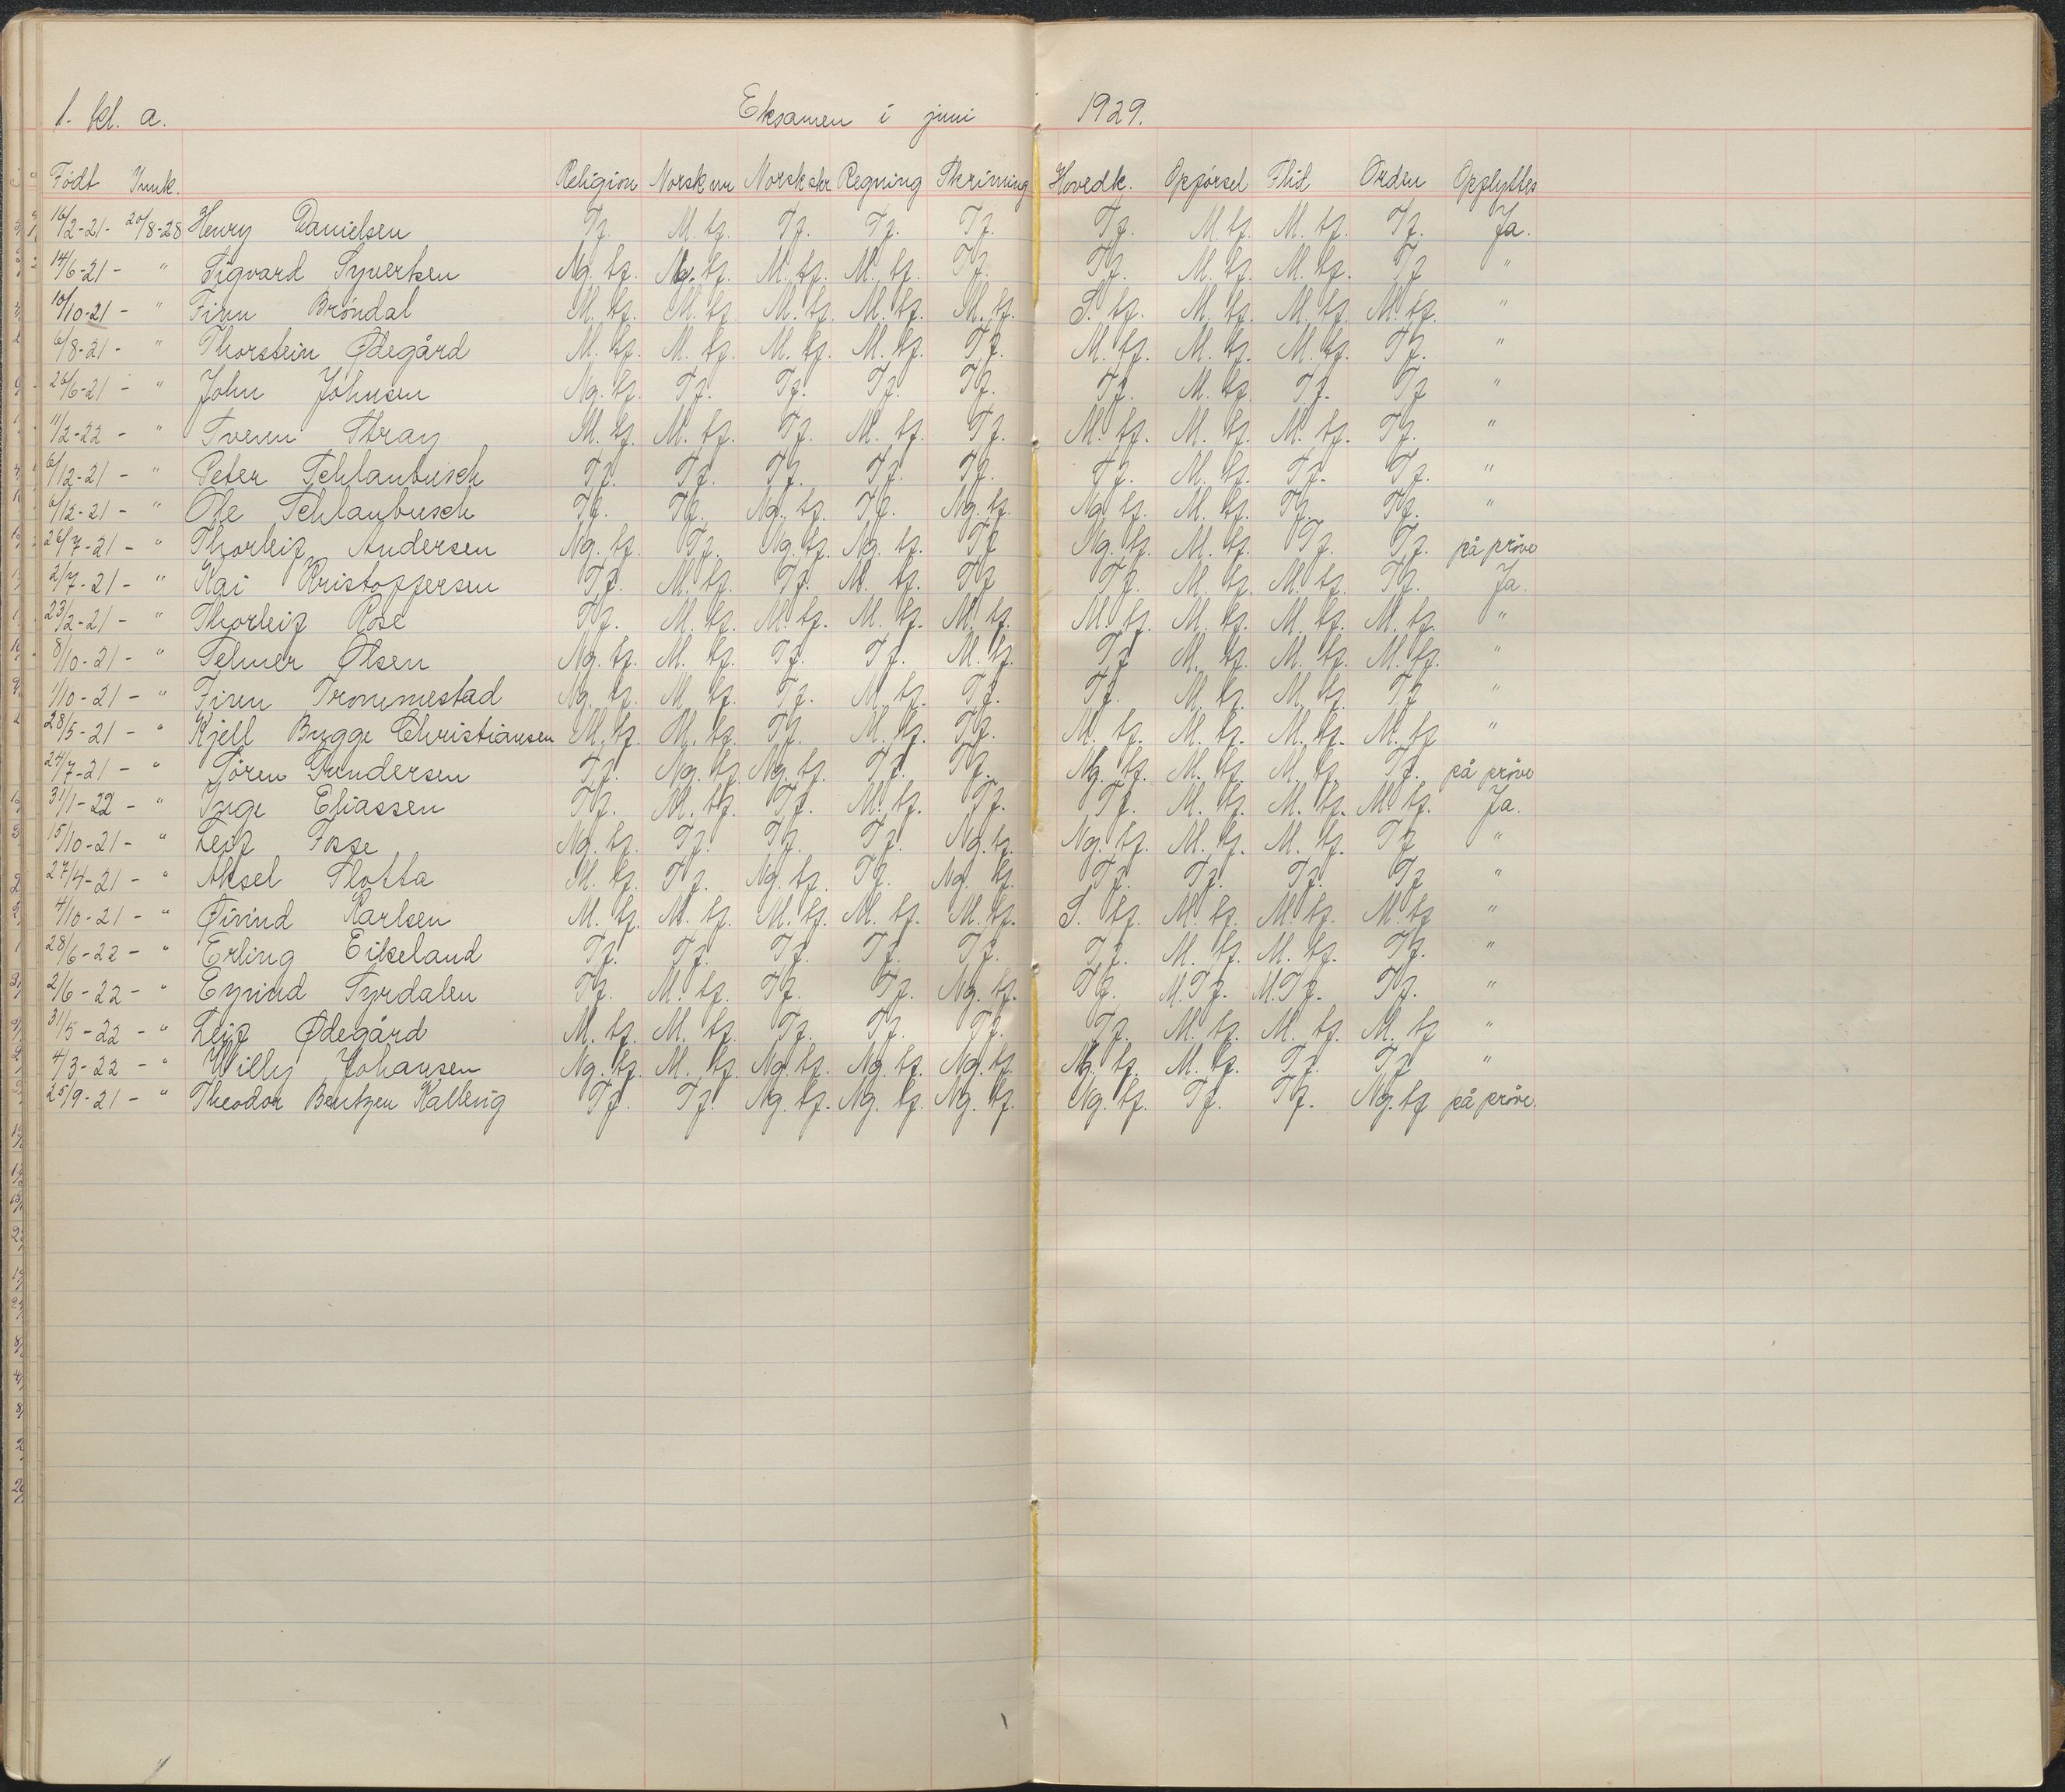 1. kl. a. Eksamen i juni 1929.
Født Innk. Religion Norsk m Norsk skr Regning Skrivning Hovedk. Oppførsel Flid Orden Opplyttes
16/2-21- 20/8-28 Henry Danielsen Tf. M. tf. Tf. Tf. Tf. Tf. M. tf. M. tf. Tf. Ja.
14/6-21- " Sigvard Syvertsen Ng. tf. Ng. tf. M. tf. M. tf. Tf. Tf. M. tf. M. tf. Tf "
10/10-21- " Finn Brøndal M. tf. M. tf. M. tf. M. tf. M. tf. S. tf. M. tf. M. tf. M. tf. "
6/8-21- " Thorstein Ødegård M. tf. M. tf. M. tf. M. tf. Tf. M. tf. M. tf. M. tf. Tf. "
26/6-21- " John Johnsen Ng. tf. Tf. Tf. Tf. Tf. Tf. M. tf. Tf. Tf "
11/2-22- " Svenn Stray M. tf. M. tf. Tf. M. tf. Tf. M. tf. M. tf. M. tf. Tf. "
6/12-21- " Peter Schlanbusch Tf. Tf. Tf. Tf. Tf. Tf. M. tf. Tf. Tf. "
6/12-21- " Ole Schlanbusch Tf. Tf. Ng. tf. Tf. Ng. tf. Ng. tf. M. tf. Tf. Tf. "
26/7-21- " Thorleif Andersen Ng. tf. Tf. Ng. tf. Ng. tf. Tf Ng. tf. M. tf. Tf. Tf. på prøve
2/7-21- " Kai Kristoffersen Tf. M. tf. Tf. M. tf. Tf Tf. M. tf. M. tf. Tf. Ja.
23/2-21- " Thorleif Rose Tf. M. tf. M. tf. M. tf. M. tf. M. tf. M. tf. M. tf. M. tf. "
8/10-21- " Selmer Olsen Ng. tf. M. tf. Tf. Tf. M. tf. Tf M. tf. M. tf. M. tf. "
1/10-21- " Finn Trommestad Ng. tf. M. tf. Tf. M. tf. Tf. Tf. M. tf. M. tf. Tf "
28/5-21- " Kjell Bugge Christiansen M. tf. M. tf. Tf. M. tf. Tf. M. tf. M. tf. M. tf. M. tf "
24/7-21- " Søren Gundersen Tf. Ng. tf. Ng. tf. Tf. Tf. Ng. tf. M. tf. M. tf. Tf. på prøve
31/1-22- " Inge Eliassen Tf. M. tf. Tf. M. tf. Tf. Tf. M. tf. M. tf. M. tf. Ja.
15/10-21- " Leif Fosse Ng. tf. Tf. Tf. Tf. Ng. tf. Ng. tf. M. tf. M. tf. Tf "
27/4-21- " Aksel Slotta M. tf. Tf. Ng. tf. Tf. Ng. tf. Tf. Tf. Tf. Tf "
4/10-21- " Øivind Karlsen M. tf. M. tf. M. tf. M. tf. M. tf. S. tf. M. tf. M. tf. M. tf "
28/6-22- " Erling Eikeland Tf. Tf. Tf. Tf. Tf. Tf. M. tf. M. tf. Tf. "
2/6-22- " Eyvind Syrdalen Tf. M. tf. Tf. Tf. Ng. tf. Tf. M. Tf. M. Tf. Tf. "
31/5-22- " Leif Ødegård M. tf. M. tf. Tf. Tf. Tf. Tf. M. tf. M. tf. M. tf "
4/3-22- " Willy Johansen Ng. tf. M. tf. Ng. tf. Ng. tf. Ng. tf. Ng. tf. M. tf. Tf. Tf "
25/9-21- " Theodor Bentzen Kallevig Tf. Tf. Ng. tf. Ng. tf. Ng. tf. Ng. tf. Tf. Tf. Ng. tf på prøve.